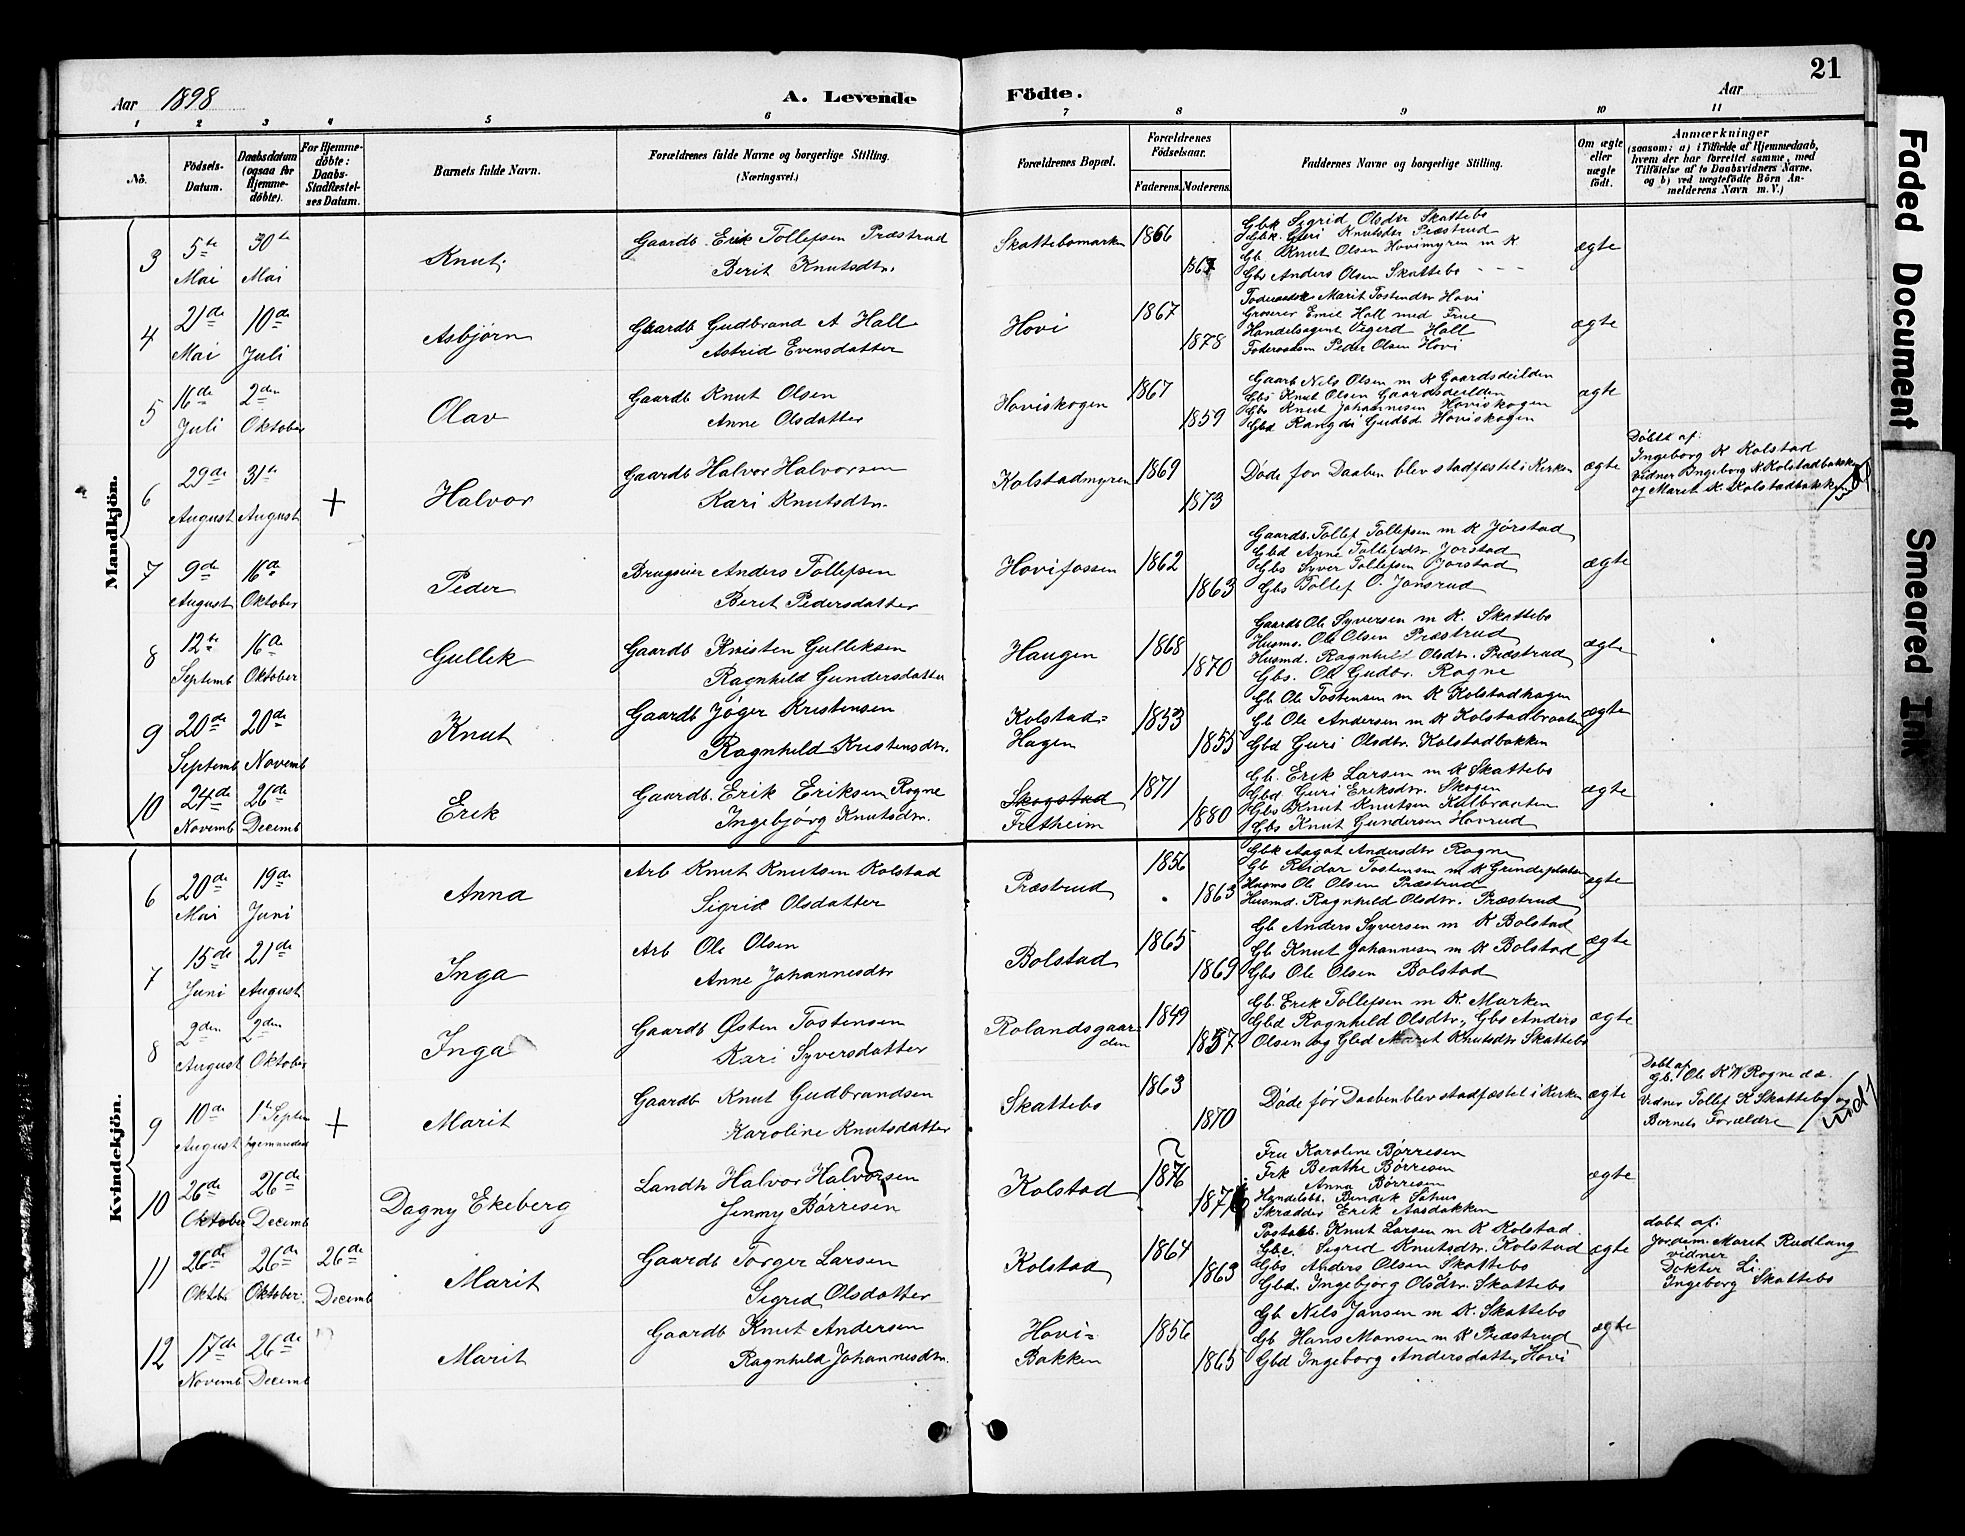 21
Aar 1898
A. Levende Födte.
Aar
1 2 3 4 5 6 7 8 9 10 11
No.
Födsels-Datum.
Daabsdatum (ogsaa for Hjemme-döbte).
For Hjemme-döbte: Daabs-Stadfæstel-ses Datum.
Barnets fulde Navn.
Forældrenes fulde Navne og borgerlige Stilling.
(Næringsvei.)
Forældrenes Bopæl.
Forældrenes Födselsaar.
Faderens. Moderens.
Faddernes Navne og borgerlige Stilling.
Om ægte eller uægte födt.
Anmærkninger
(saasom: a) i Tilfælde af Hjemmedaab,
hvem der har forrettet samme, med
Tilföielse af to Daabsvidners Navne,
og b) ved uægtefödte Börn An-
melderens Navn m. V.)
Mandkjön.
3 5te Mai 30te Mai
Knut
Gaardb Erik Tollefsen Præstrud
Berit Knutsdtr.
Skattebomarken
1866
1867
Gbk Sigrid Olsdtr Skattebo
Gbk. Guri Knutsdtr Præstrud
Gb Knut Olsen Hovimyren m K
Gbs Anders Olsen Skattebo - - -
ægte
4 21de Mai 10de Juli
Asbjørn
Gaardb Gudbrand A Hall
Astrid Evensdatter
Hovi
1867
1878
Marit Tostendtr Hovi
Groserer Emil Hall med Frue
Handelsagent Vegerd Hall
Peder Olsen Hovi
ægte
5 16de Juli 2den Oktober
Olav
Gaardb Knut Olsen
Anne Olsdatter
Hoviskogen
1867
1859
Gaarb Nils Olsen m K Gaardsdeilden
Gbs Knut Olsen Gaardsdeilden
Gbs Knut Johannesen Hoviskogen
Gbd Rangdi Gudbd Hoviskogen
ægte
6 29de August 31te August +
Halvor
Gaardb Halvor Halvorsen
Kari Knutsdtr.
Kolstadmyren
1869
1873
Døde for Daaben blev stadfæstet i Kirken
ægte
Døbt af:
Ingeborg K Kolstad
Vidner Ingeborg K Kolstadbakken
og Marit K. Kolstadbakken
7 9de August 16de Oktober
Peder
Brugseier Anders Tollefsen
Berit Pedersdatter
Hovifossen
1862
1863
Gaardb. Tollef Tollefsen m K Jørstad
Gbd Anne Tollefsdtr. Jorstad
Gbs Syver Tollefsen Jorstad
Gbs Tollef O. Jonsrud
ægte
8 12te Septemb 16de Oktober
Gullek
Gaardb Kristen Gulleksen
Ragnhild Gundersdatter
Haugen
1868
1870
Gaardb Ole Syversen m K. Skattebo
Husms. Ole Olsen Præstrud
Husmd. Ragnhild Olsdtr. Præstrud
Gbs. Ole Gudbr. Rogne
ægte
9 20de Septemb 20de Novemb
Knut
Gaardb Jøger Kristensen
Ragnhild Kristensdtr.
Kolstad=
Hagen
1853
1855
Gb Ole Tostensen m K Kolstadhagen
Gb Ole Andersen m K Kolstadbraaten
Gbd Guri Olsdtr. Kolstadbakken
ægte
10 24de Novemb 26de Decemb
Erik
Gaardb. Erik Eriksen Rogne
Ingebjørg Knutsdtr.
Skogstad
Fretheim
1871
1880
Gb. Erik Larsen m K Skattebo
Gbd Guri Eriksdtr. Skogen
Gbs Knut Knutsen Kolbraaten
Gbs Knut Gundersen Hovrud
ægte
Kvindekjön.
6 20de Mai 19de Juni
Anna
Arb Knut Knutsen Kolstad
Sigrid Olsdatter
Præstrud
1856
1863
Gbk Aagot Andersdtr Rogne
Gb Reidar Tostensen m K Grindeplaten
Husms Ole Olsen Præstrud
Husmd. Ragnhild Olsdtr. Præstrud
ægte
7 15de Juni 21de August
Inga
Arb Ole Olsen
Anne Johannesdtr
Bolstad
1865
1869
Gb Anders Syversen m K Bolstad
Gb Knut Johannesen m K Bolstad
Gbs Ole Olsen Bolstad
ægte
8 2den August 2den Oktober
Inga
Gaardb Østen Tostensen
Kari Syversdatter
Rolandsgaar=
den
1849
1857
Gb. Erik Tollefsen m K. Marken
Gbd Ragnhild Olsdtr, Gbs Anders
Olsen og Gbd Marit Knutsdtr Skattebo
ægte
9 10de August 1te Septem hjemmedøbt +
Marit
Gaardb Knut Gudbrandsen
Karoline Knutsdatter
Skattebo
1863
1870
Døde før Daaben blev stadfæstet i Kirken
ægte
Døbt af
Gb. Ole K Rogne d.æ.
Vidner Tollef K Skattebo og
Bernets Forældre
10 26de Oktober 26de Decemb
Dagny Ekeberg
Landh Halvor Halvorsen
Jenny Børresen
Kolstad
1876
187
Fru Karoline Børresen
Frk Beathe Børresen
Anna Børresen
Handelsb. Bendik Sahus
Skrædder Erik Aasdokken
ægte
11 26de Oktober 26de Oktober. 26de Decemb
Marit
Gaardb Torger Larsen
Sigrid Olsdatter
Kolstad
1864
1863
Postaab. Knut Larsen m K Kolstad.
Gbe. Sigrid Knutsdtr. Kolstad
Gbs Anders Olsen Skattebo
Gbd. Ingebjørg Olsdtr. Skattebo
ægte
døbt af:
Jordm. Marit Rudlang
vidner
Dokter Li.
Ingeborg Skattebo
12 17de Novemb 26de Decemb
Marit
Gaardb Knut Andersen
Ragnhild Johannesdtr.
Hovi=
Bakken
1856
1865
Gb Nils Jansen m K. Skattebo
Gb Hans Monsen m K Præstrud
Gbd Ingeborg Andersdatter Hovi
ægte
Faded Document
Smeared Ink